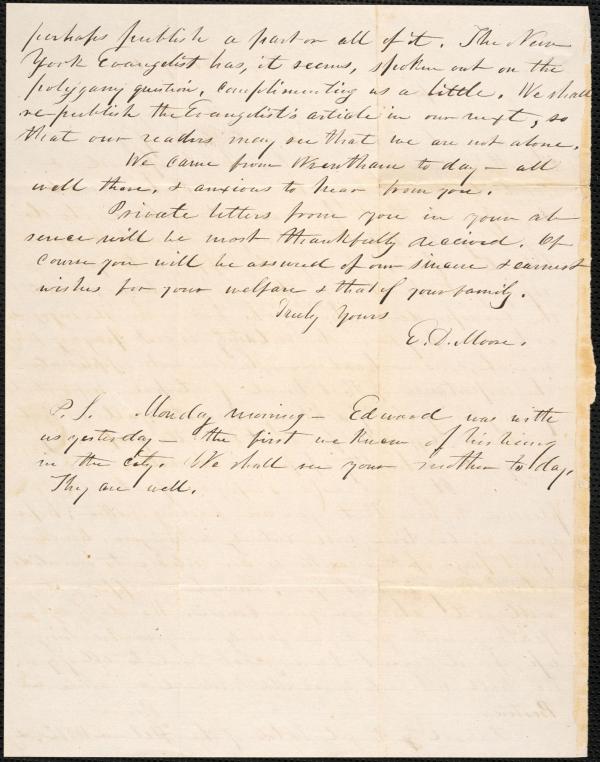 perhaps publish a part or all of it. The New
York Evangelist has, it seems, spoken out on the
polygamy question, complimenting us a little. We shall
re-publish the Evangelist's article in our next, so
that our readers may see that we are not alone.
We came from Wrentham to day – all
well there, & anxious to hear from you.
Private letters from you in your ab-
sence will be most thankfully received. Of
course you will be assured of our sincere & earnest
wishes for your welfare & that of your family.
Truly Yours
E. D. Moore.
P. S. Monday morning – Edward was with
us yesterday – the first we knew of his being
in the city. We shall see your mother to day.
They are well.